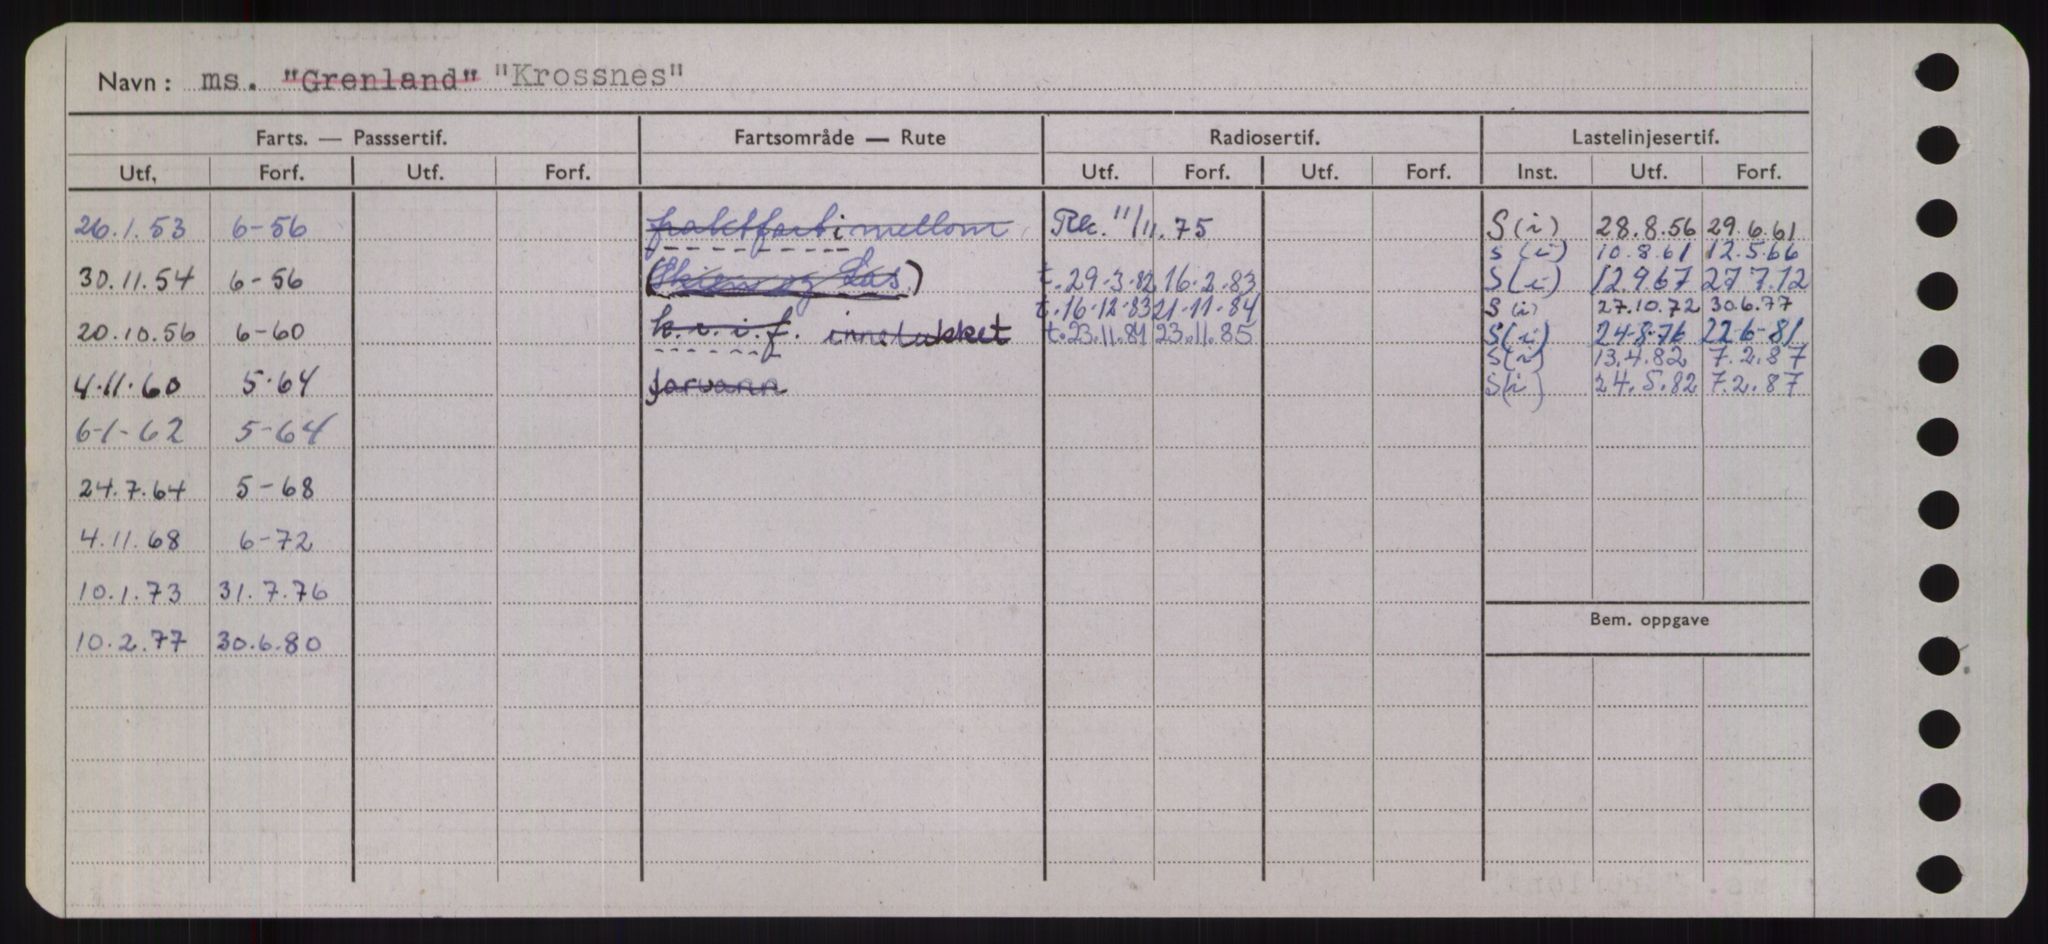 Navn: ms. "Grenland" "Krossnes"
Farts. — Passsertif. Fartsområde — Rute Radiosertif. Lastelinjesertif.
Utf. Forf. Utf. Forf. Utf. Forf. Utf. Forf. Inst. Utf. Forf.
26.1.53 6-56 fraktfart i mellom Tlk. 11/11.75 S(i) 28.8.56 29.6.61
S(i) 10.8.61 12.5.66
30.11.54 6-56 (Skien og Las) t.29.3.82 16.2.83 S(i) 12.9.67 27.7.72
t.16.12.83 21.11.84 S(i) 27.10.72 30.6.77
20.10.56 6-60 k.v.i.f. innelukket t.23.11.84 23.11.85 S(i) 24.8.76 22-6-81
S(i) 13.4.82 7.2.87
4.11.60 5.64 farvann S(i) 24.5.82 7.2.87
6-1-62 5-64
24.7.64 5-68
4.11.68 6-72
10.1.73 31.7.76
Bem. oppgave
10.2.77 30.6.80